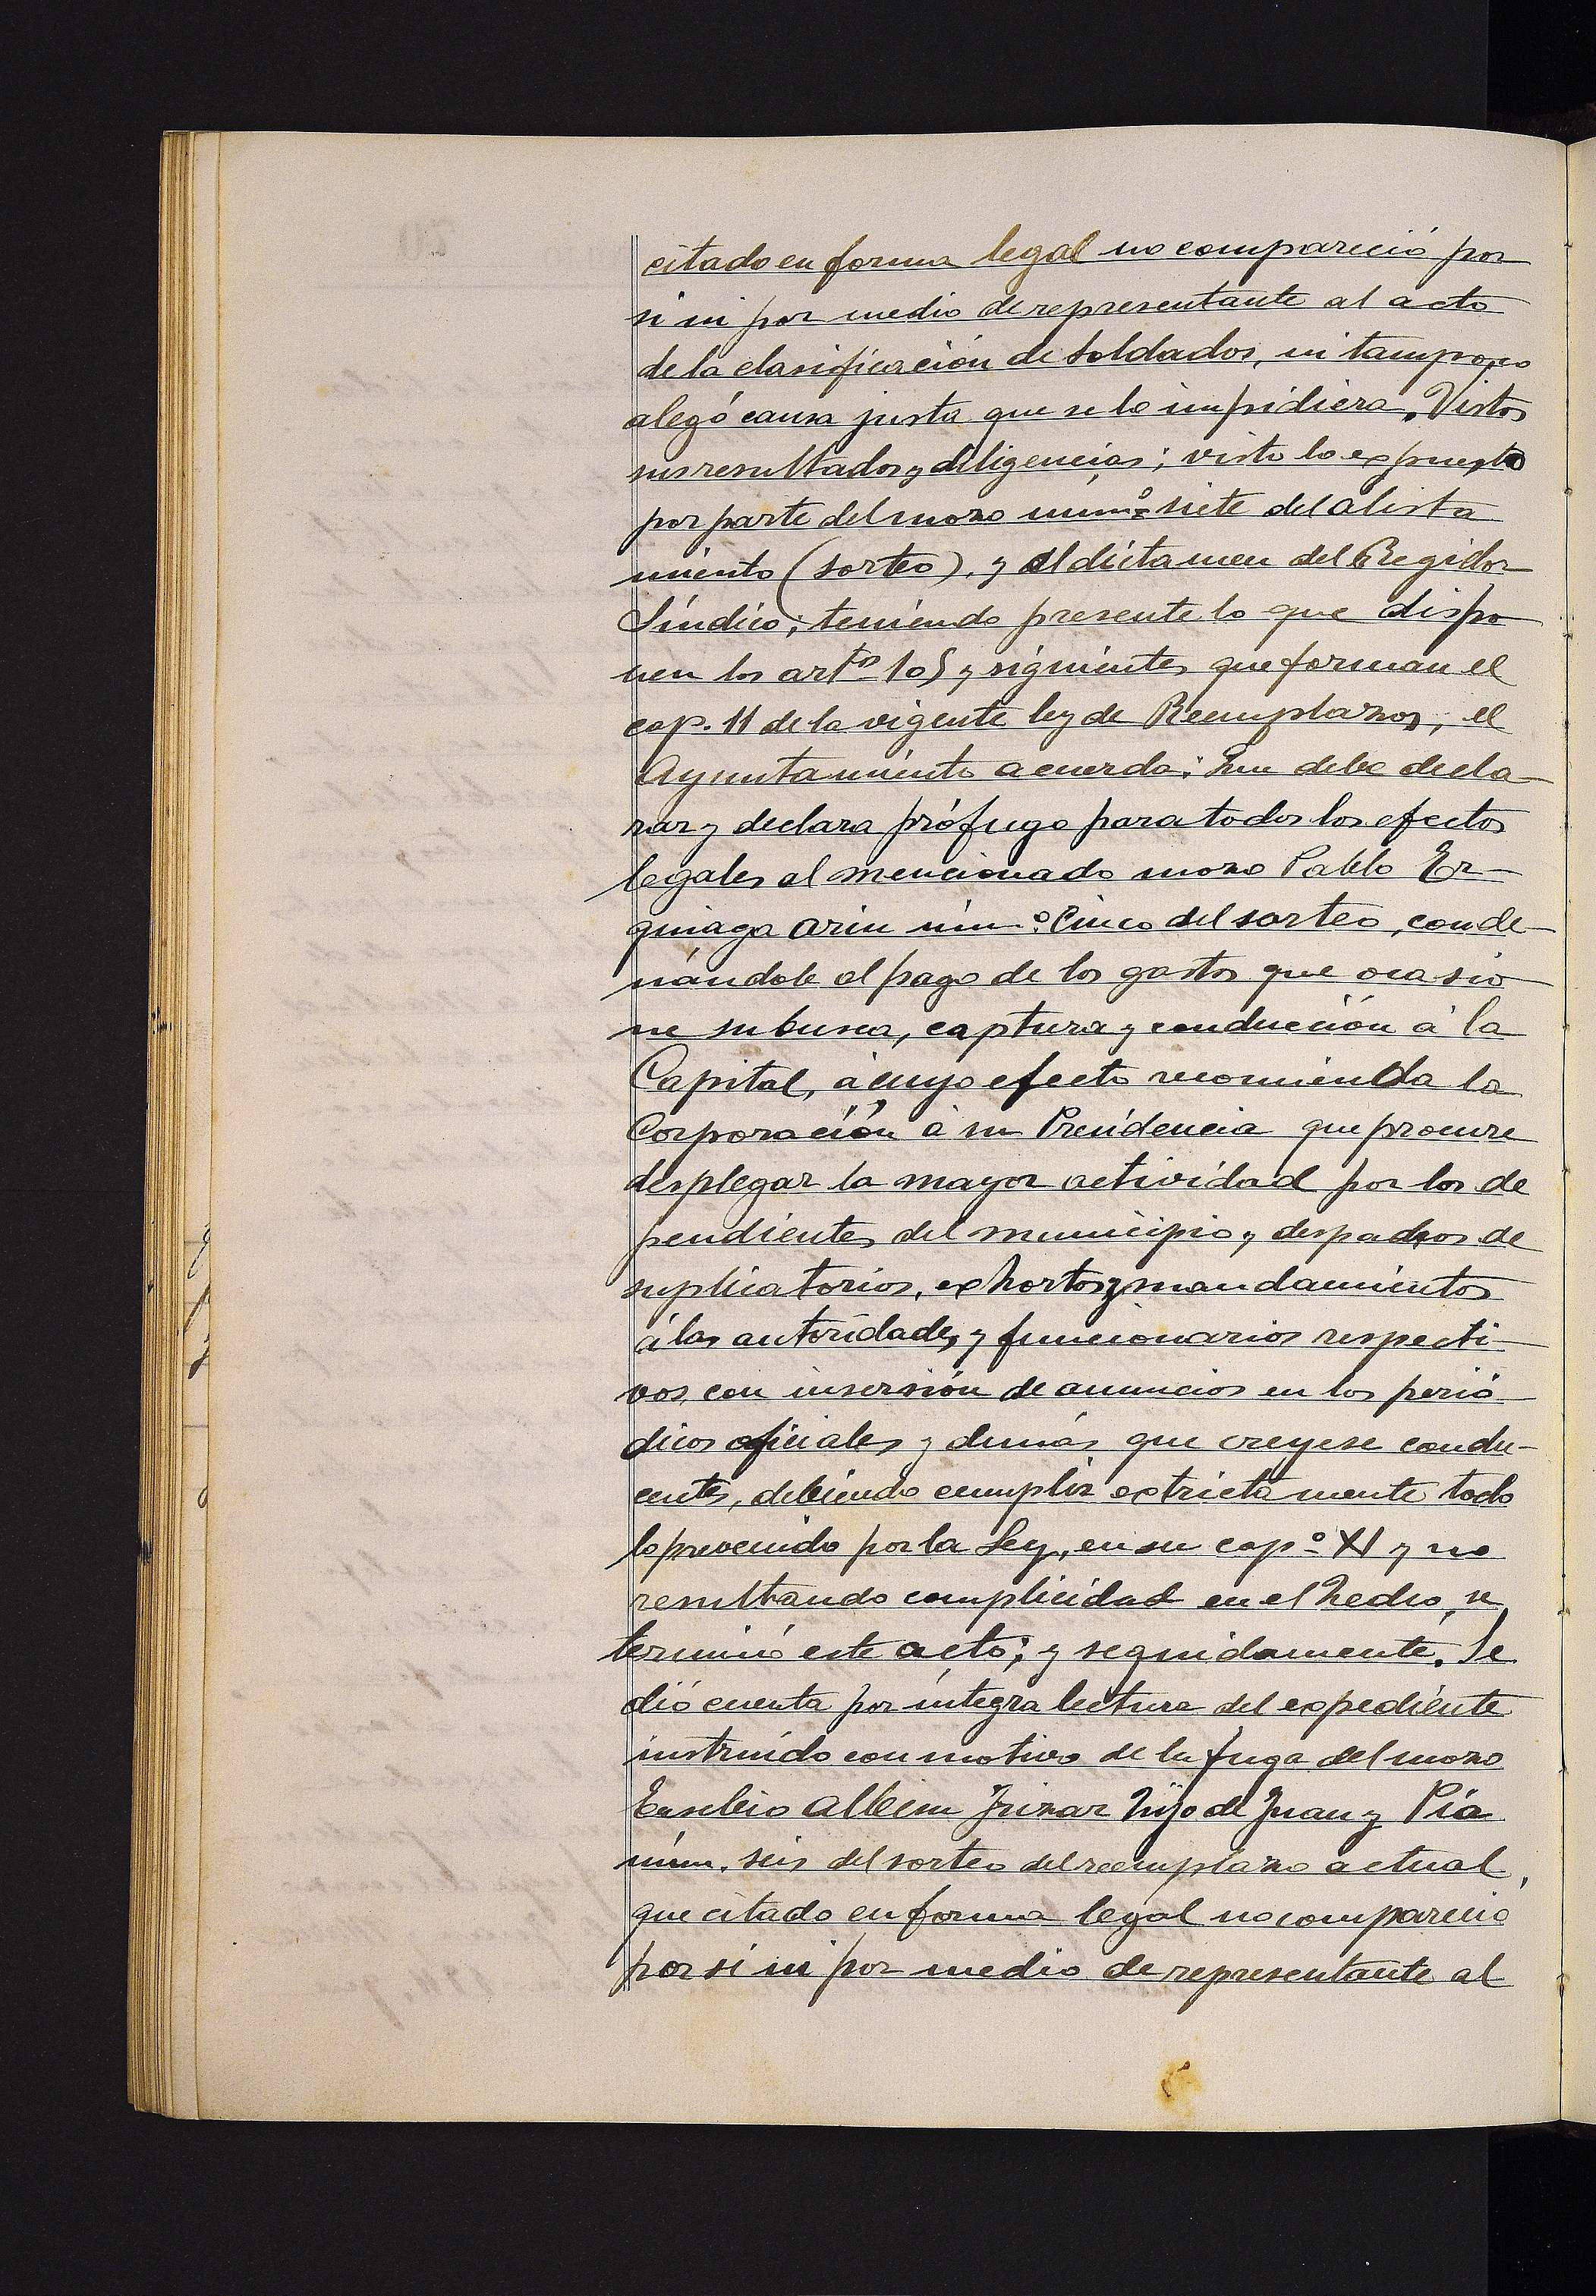 citado en forma legal no compareció por
si ni por medio de representante al acto
de la clasificación de soldados, ni tampoco
alegó causa justa que se lo impidiera. Vistos
sus resultados y diligencias; visto lo expuesto
por parte del mozo núm.º siete del alista
miento (sorteo), y el dictamen del Regidor
Síndico; teniendo presente lo que dispo
nen los artos 105 y siguientes que forman el
cap. 11 de la vigente ley de Reemplazos, el
Ayuntamiento acuerda: Que debe decla-
rar y declara prófugo para todos los efectos
legales al mencionado mozo Pablo Er-
quiaga Arin núm.º Cinco del sorteo, conde-
nándole al pago de los gastos que ocasio-
ne su busca, captura y conducción á la
Capital, á cuyo efecto recomienda la
Corporación á su Presidencia que procure
desplegar la mayor actividad por los de
pendientes del municipio, y despachos de
suplicatorios, exhortos y mandamientos
á las autoridades y funcionarios respecti-
vos, con inserción de anuncios en los perió-
dicos oficiales y demás que creyese condu-
cente, debiendo cumplir extrictamente todo
lo prevenido por la Ley, en su cap.º XI y no
resultando complicidad en el hecho, se
terminó este acto; y seguidamente. Se
dió cuenta por íntegra lectura del expediente
instruído con motivo de la fuga del mozo
Eusebio Hijo de Juan y Pía
núm. seis del sorteo del reemplazo actual,
que citado en forma legal no compareció
por sí ni por medio de representante al